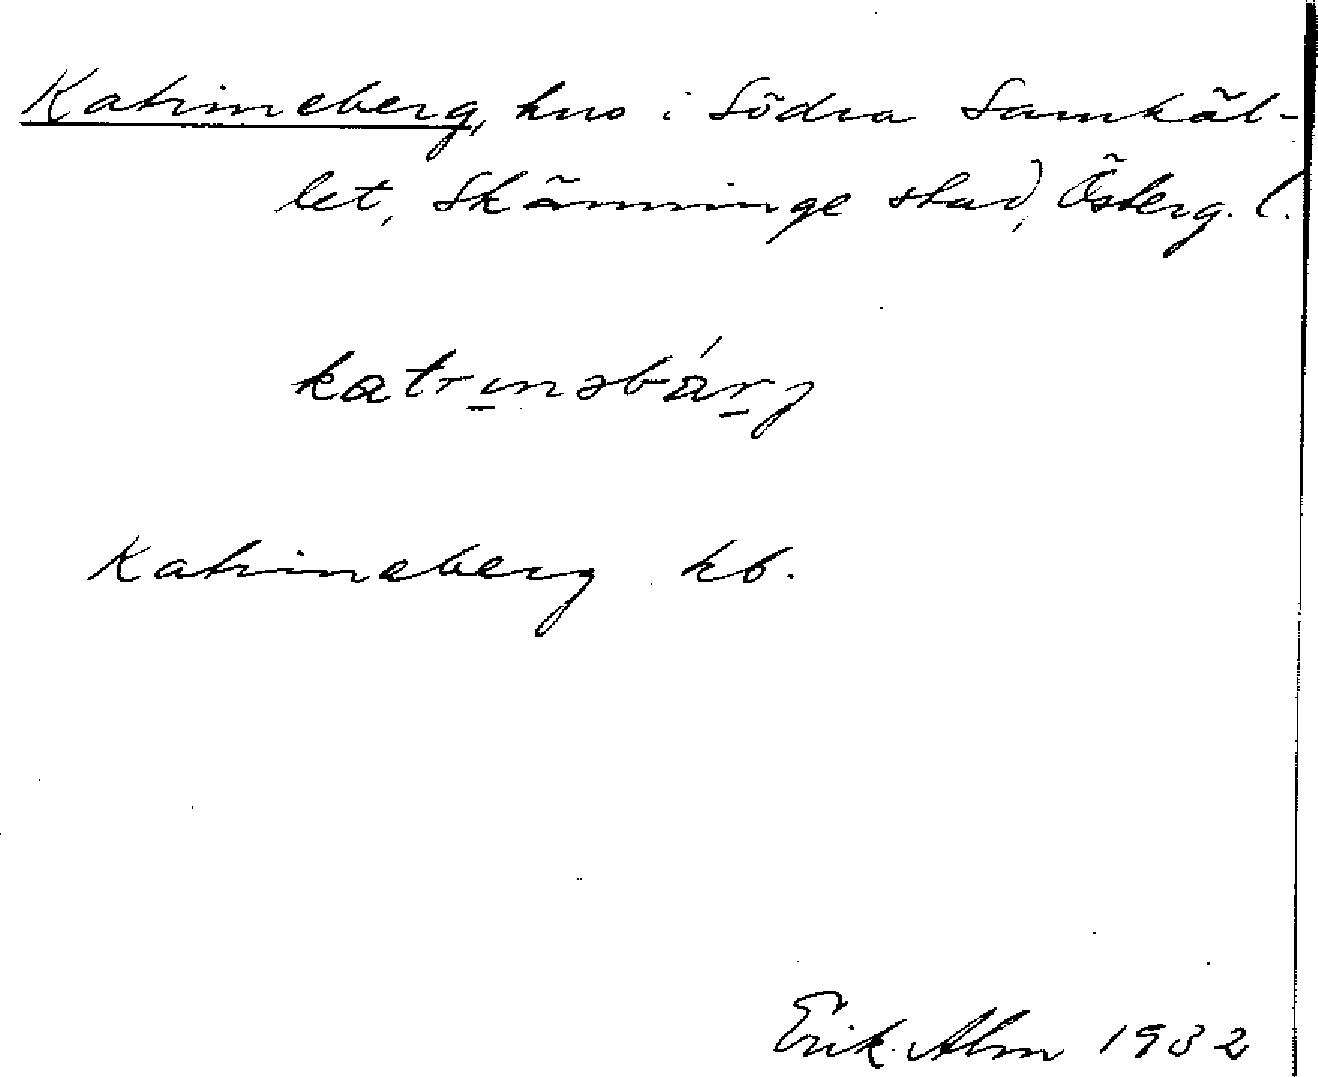 Katrineberg, hus i Södra Samhäl-
let, Skänninge stad, Österg. l.
katrinəbárj
Katrineberg kb.
Erik Alm 1932